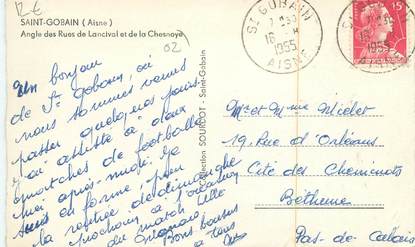 12€
SAINT-GOBAIN (Aisne)
Angle des Rues de Lancival et de la Chesnoye
02
Un bonjour
de St Gobain, où
nous sommes venus
passer quelques jours
j'ai assisté à deux
matches de football
après-midi. Je
suis en forme pour
la rentrée de dimanche
prochain à l'occasion
du match
Bons baisers
à tous
Collection SOURDOT - Saint-Gobain
ST GOBAIN
16
1955
AISNE
1955
15
Mr et Mme Miclet
19 Rue d'Orléans
Cité des Cheminots
Béthune
Pas-de-Calais